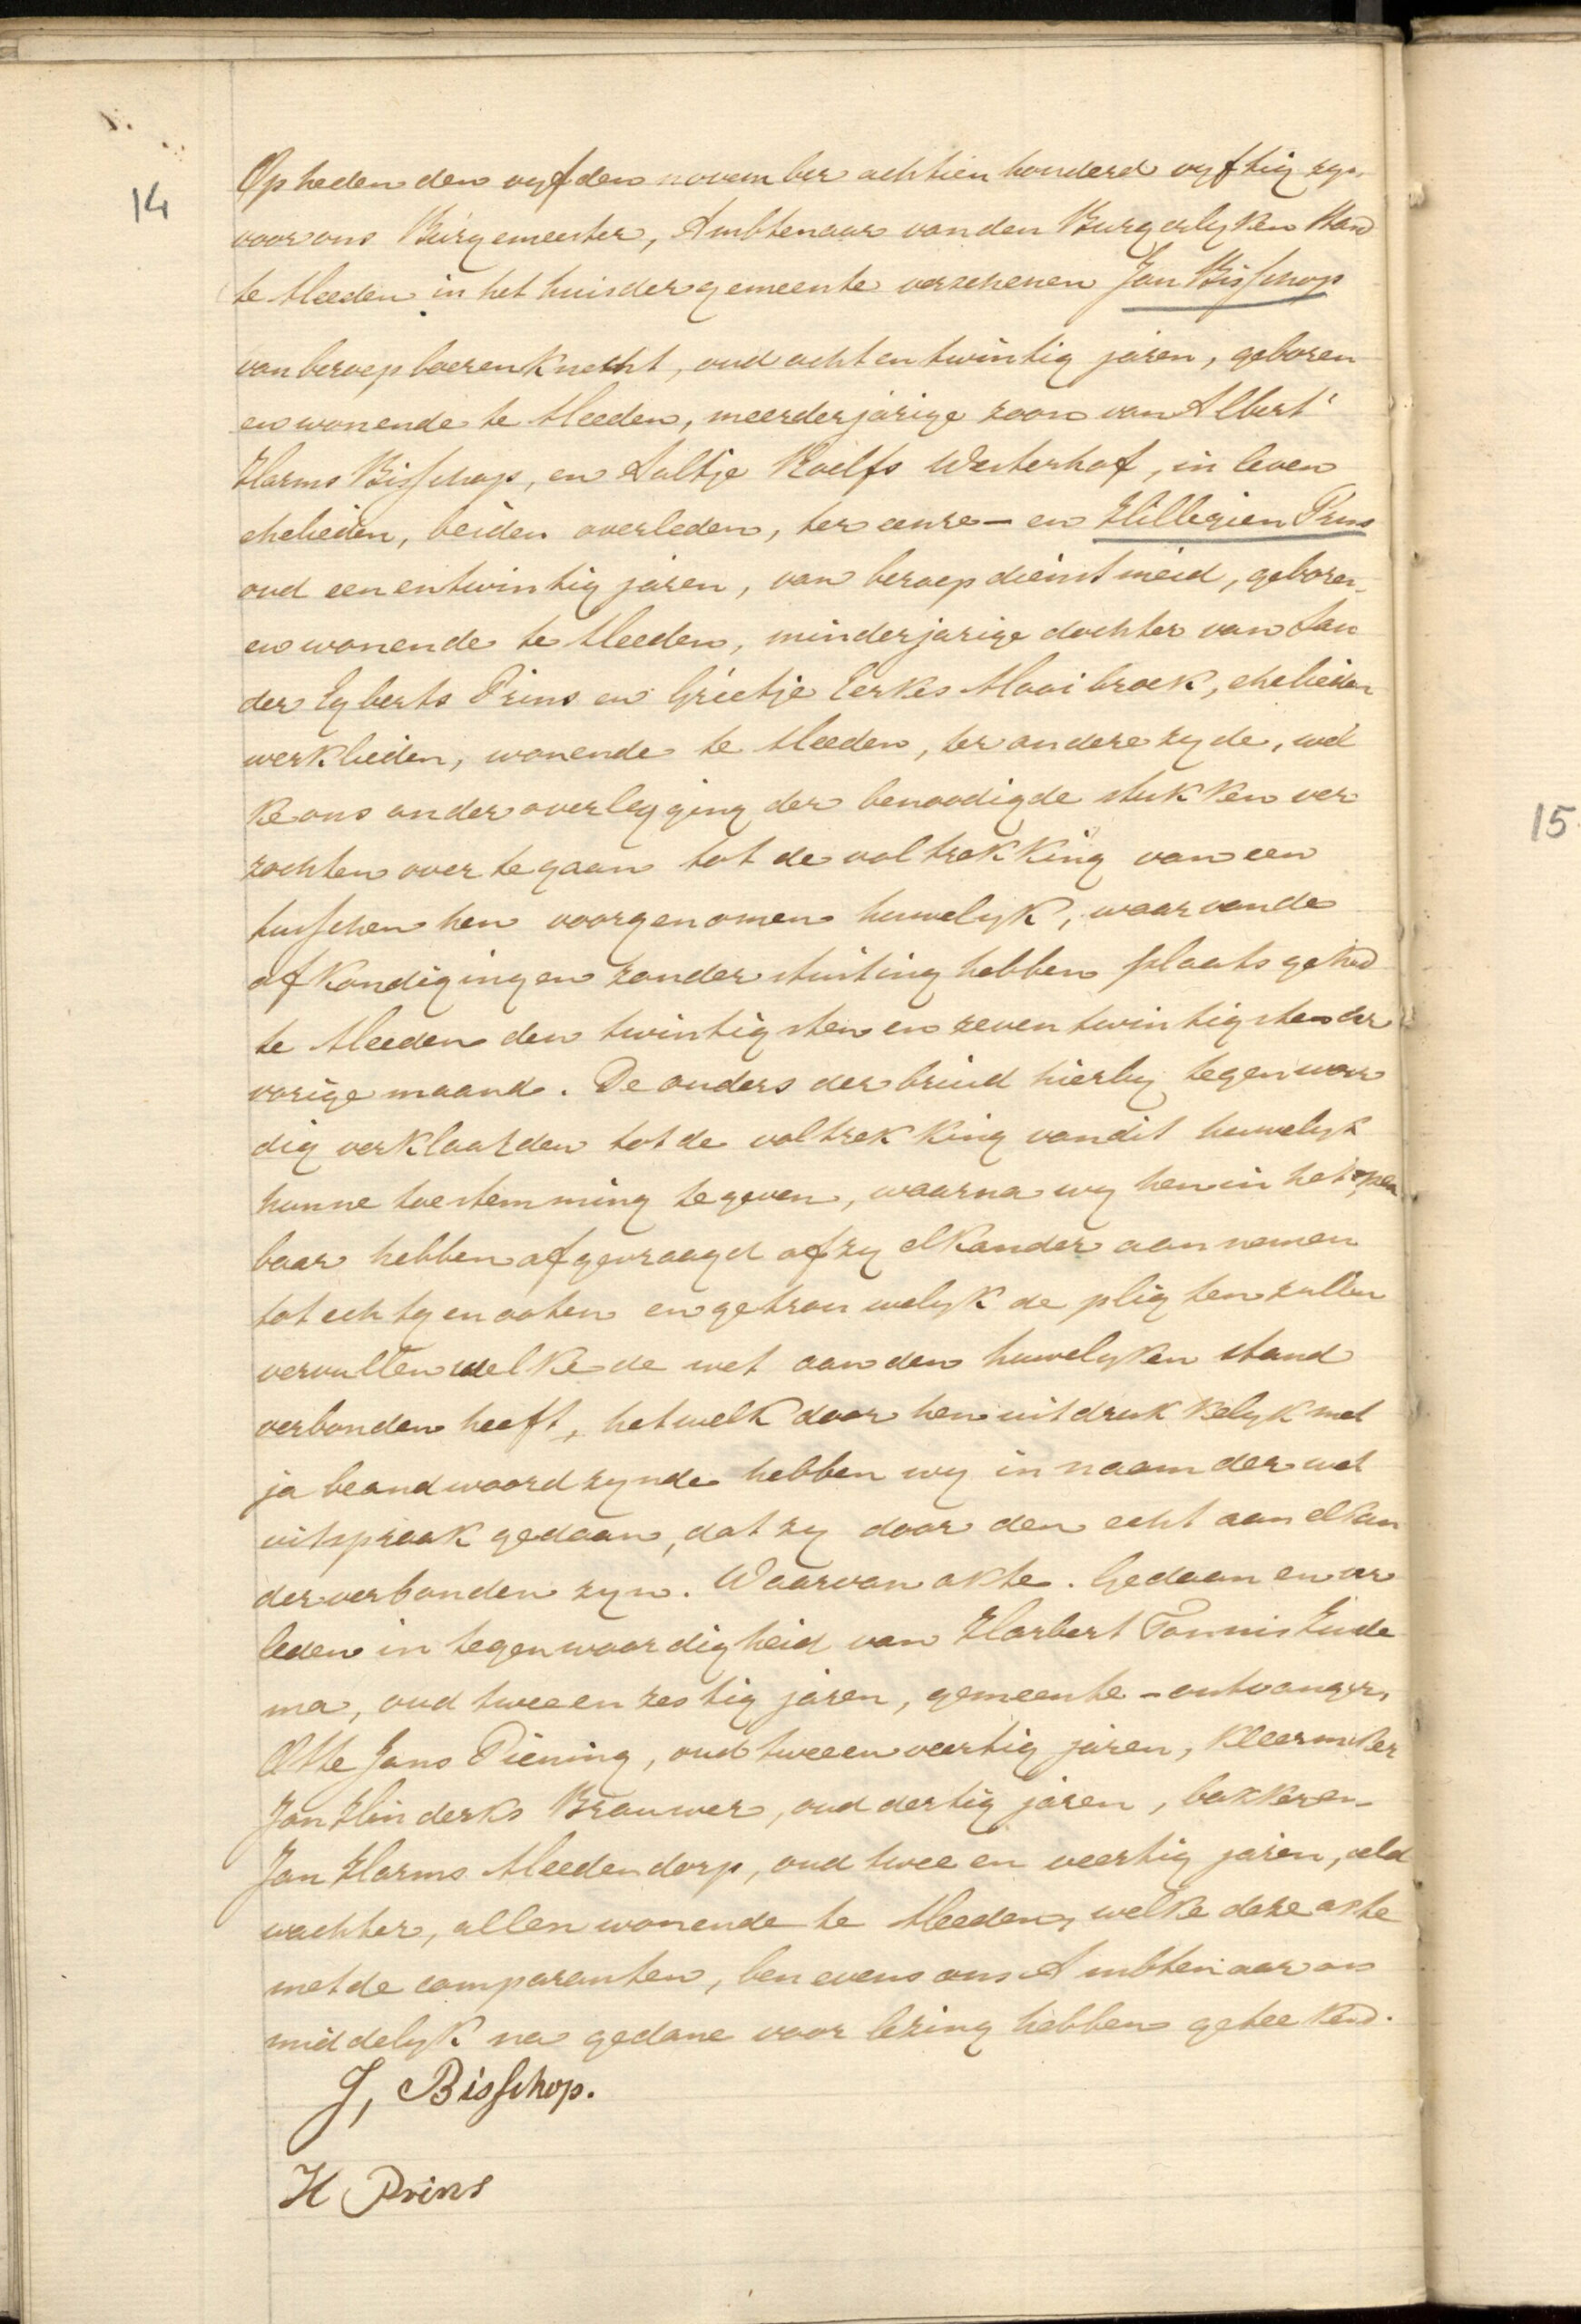 14
Op heden den vyfden november achtien honderd vyftig zyn
voor ons Burgemeester, Ambtenaar van den Burgerlyken Stand
te Meeden in het huis der gemeente verschenen Jan Bisschop
van beroep boerenknecht, oud acht en twintig jaren, geboren
en wonende te Meeden, meerderjarige zoon van Albert
Harms Bisschop, en Aaltje Roelfs Westerhof, in leven
ehelieden, beiden overleden, ter eenre - en Hillegien Prins
oud een en twintig jaren, van beroep dienstmeid, geboren
en wonende te Meeden, minderjarige dochter van San
der Egberts Prins en Grietje Eerkes Mooibroek, ehelieden
werklieden, wonende te Meeden, ter andere zyde, wel
ke ons onder overlegging der benoodigde stukken ver
zochten over te gaan tot de voltrekking van een
tusschen hen voorgenomen huwelyk, waarvan de
afkondigingen zonder stuiting hebben plaats gehad
te Meeden den twintigsten en zeven twintigsten der
vorige maand. De ouders der bruid hierby tegenwoor
dig verklaarden tot de voltrekking van dit huwelyk
hunne toestemming te geven, waarna wy hen in het open
baar hebben afgevraagd of zy elkander aannemen
tot echtgenooten en getrouwelyk de pligten zullen
vervullen welke de wet aan den huwelyken stand
verbonden heeft, hetwelk door hen uitdrukkelyk met
ja beandwoord zynde hebben wy in naam der wet
uitspraak gedaan, dat zy door den echt aan elkan
der verbonden zyn. Waarvan akte. Gedaan en ver
leden in tegenwoordigheid van Harbert Tonnis Ende
ma, oud twee en zestig jaren, gemeente-ontvanger,
Otte Jans Piening, oud twee en veertig jaren, kleermaker
Jan Hinderks Brouwer, oud dertig jaren, bakker en
Jan Harms Meedendorp, oud twee en veertig jaren, veld
wachter, allen wonende te Meeden, welke deze akte
met de comparanten, benevens ons Ambtenaar on
middelyk na gedane voorlezing hebben geteekend.
J, Bisschop.
H Prins
15